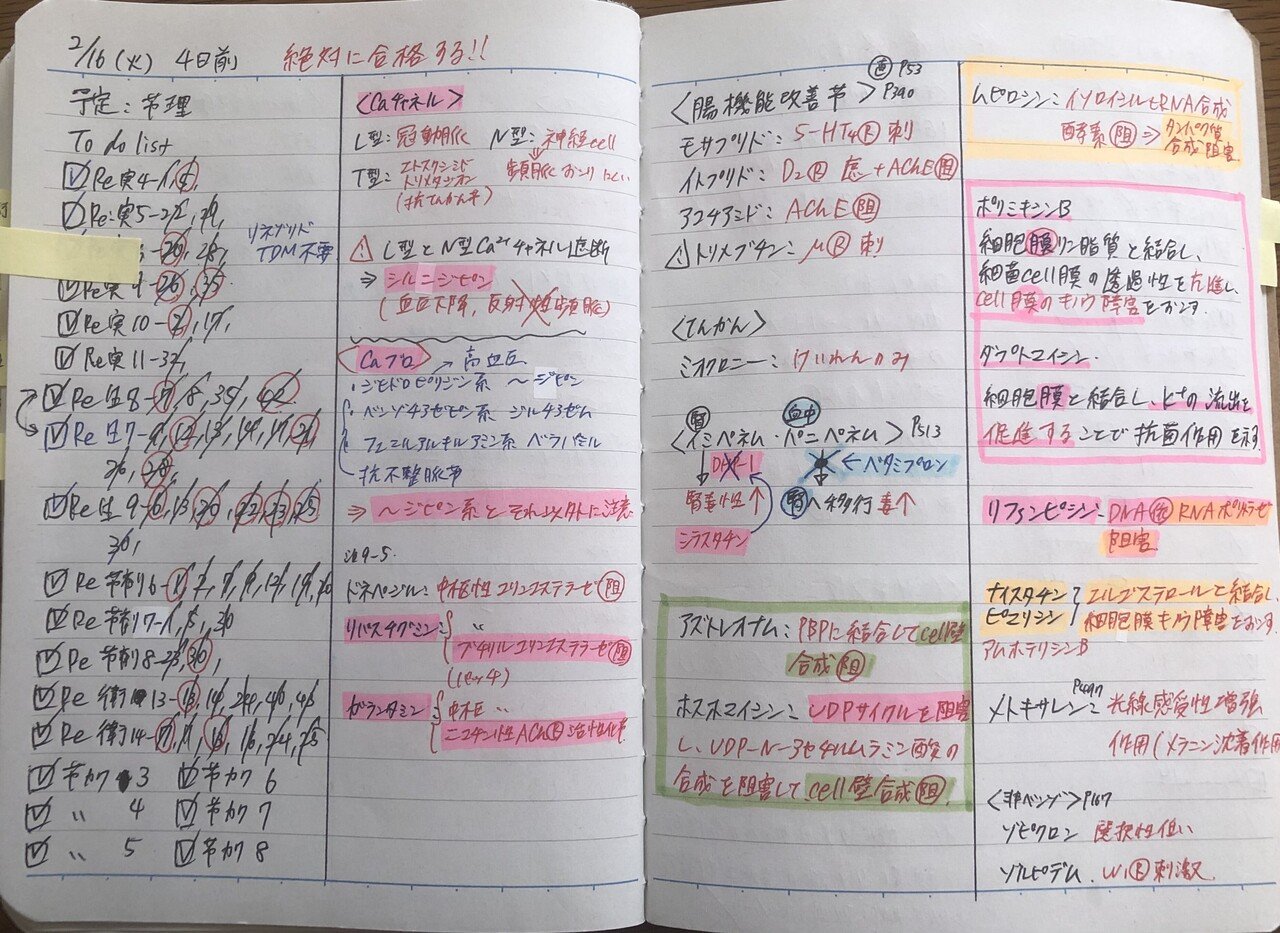 2/16(火) 4日前 絶対に合格する!!
予定:薬理
To do list
Re実4-1,5,
Re:実5-2,
リネゾリド
TDM不要
-26,35
Re実10-2,17,
Re実11-32,
Re生8-7,8,35,42
Re生7-9,12,13,14,17,21
26,28,
Re生9-6,13,20,22,23,25
30,
Re薬剤6-1,2,7,9,12,19,20
Re薬剤7-1,5,30
Re薬剤8-23,30,
Re衛13-13,14,
Re衛14-7,
薬力3 薬力6
〃 4 薬力7
〃 5 薬力8
<Caチャネル>
L型:冠動脈 N型:神経cell
T型:エトスクシミド
トリメタジオン
(抗てんかん薬)
頻脈おこりにくい
⚠ L型とN型Ca²⁺チャネル遮断
⇒シルニジピン
(血圧下降,反射性頻脈)
Caブロ → 高血圧
・ジヒドロピリジン系 〜ジピン
ベンゾチアゼピン系 ジルチアゼム
フェニルアルキルアミン系 ベラパミル
抗不整脈薬
⇒〜ジピン系とそれ以外に注意
9-5.
ドネペジル:中枢性コリンエステラーゼ阻
リバスチグミン:〃
ブチリルコリンエステラーゼ阻
(1日1回)
ガランタミン 中枢〃
ニコチン性ACh R 活性化
P53
<腸機能改善薬> P340
モサプリド:5-HT4 R 刺
イトプリド:D2 R 遮+AChE 阻
アコチアミド:AChE 阻
⚠トリメブチン:μ R 刺
<てんかん>
ミオクロニー:けいれんのみ
腎 血中
<イミペネム・パニペネム> P513
DHP-1 ←ベタミプロン
腎毒性↑ 腎へ移行毒↑
シラスタチン
アズトレオナム:PBPに結合してcell壁
合成阻
ホスホマイシン:UDPサイクルを阻害
し、UDP-N-アセチルムラミン酸の
合成を阻害してcell壁合成阻
ムピロシン:イソロイシルtRNA合成
酵素阻⇒タンパク質
合成阻害
ポリミキシンB
細胞膜リン脂質と結合し、
細菌cell膜の透過性を亢進し、
cell膜のキノウ障害をおこす.
ダプトマイシン.
細胞膜と結合し、K⁺の流出を
促進することで抗菌作用を示す
リファンピシン:DNA依RNAポリメラーゼ
阻害
ナイスタチン
ピマリシン
エルゴステロールと結合し、
細胞膜キノウ障害をおこす
アムホテリシンB
P497
メトキサレン:光線感受性増強
作用(メラニン沈着作用
<非ベンゾ> P167
ゾピクロン 選択性低い
ゾルピデム. ω1 R 刺激.